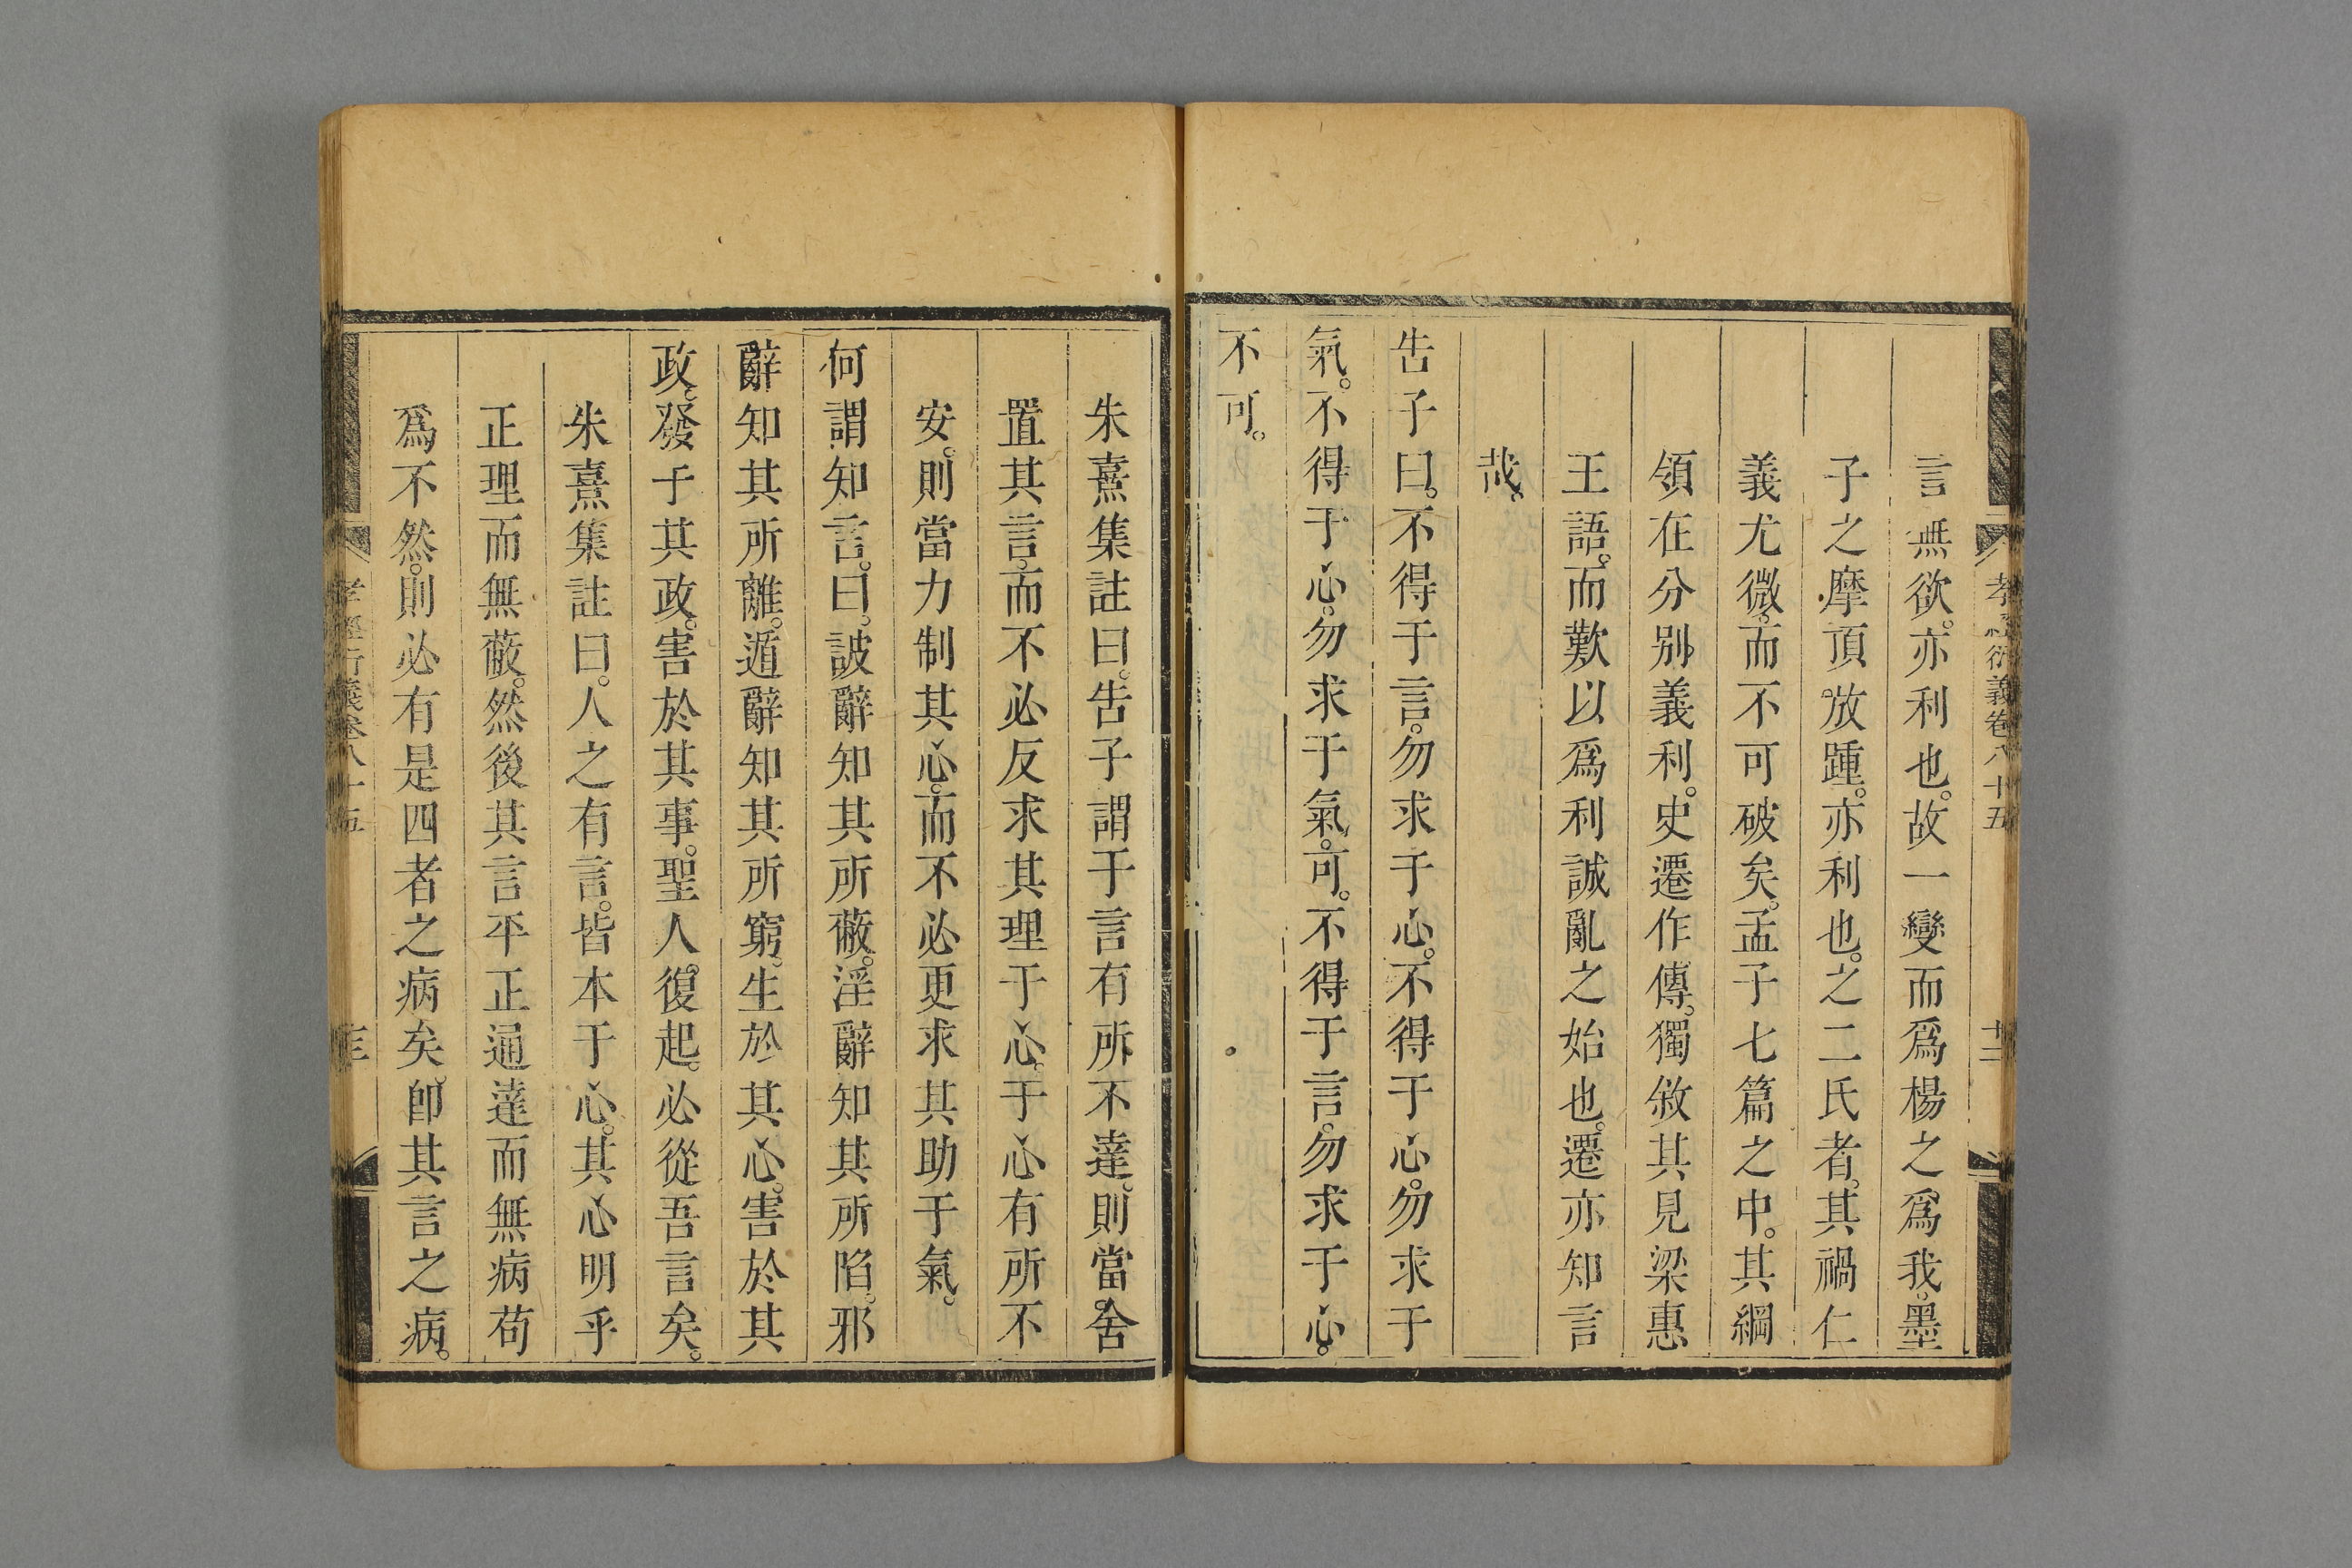 孝經衍義卷八十五
十二
言無欲。亦利也。故一變而爲楊之爲我。墨
子之摩頂。放踵。亦利也。之二氏者。其禍仁
義尤微。而不可破矣。孟子七篇之中。其綱
領在分别義利。史遷作傳。獨敘其見梁惠
王語。而歎以爲利誠亂之始也。遷亦知言
哉。
告子曰。不得于言。勿求于心。不得于心。勿求于
氣。不得于心。勿求于氣。可。不得于言。勿求于心。
不可。
朱熹集註曰。告子謂于言有所不達。則當舍
置其言。而不必反求其理于心。于心有所不
安。則當力制其心。而不必更求其助于氣。
何謂知言。曰。詖辭知其所蔽。淫辭知其所陷。邪
辭知其所離。遁辭知其所窮。生於其心。害於其
政。發于其政。害於其事。聖人復起。必從吾言矣。
朱熹集註曰。人之有言。皆本于心。其心明乎
正理而無蔽。然後其言平正通達而無病苟
爲不然。則必有是四者之病矣。卽其言之病。
孝經衍義卷八十五